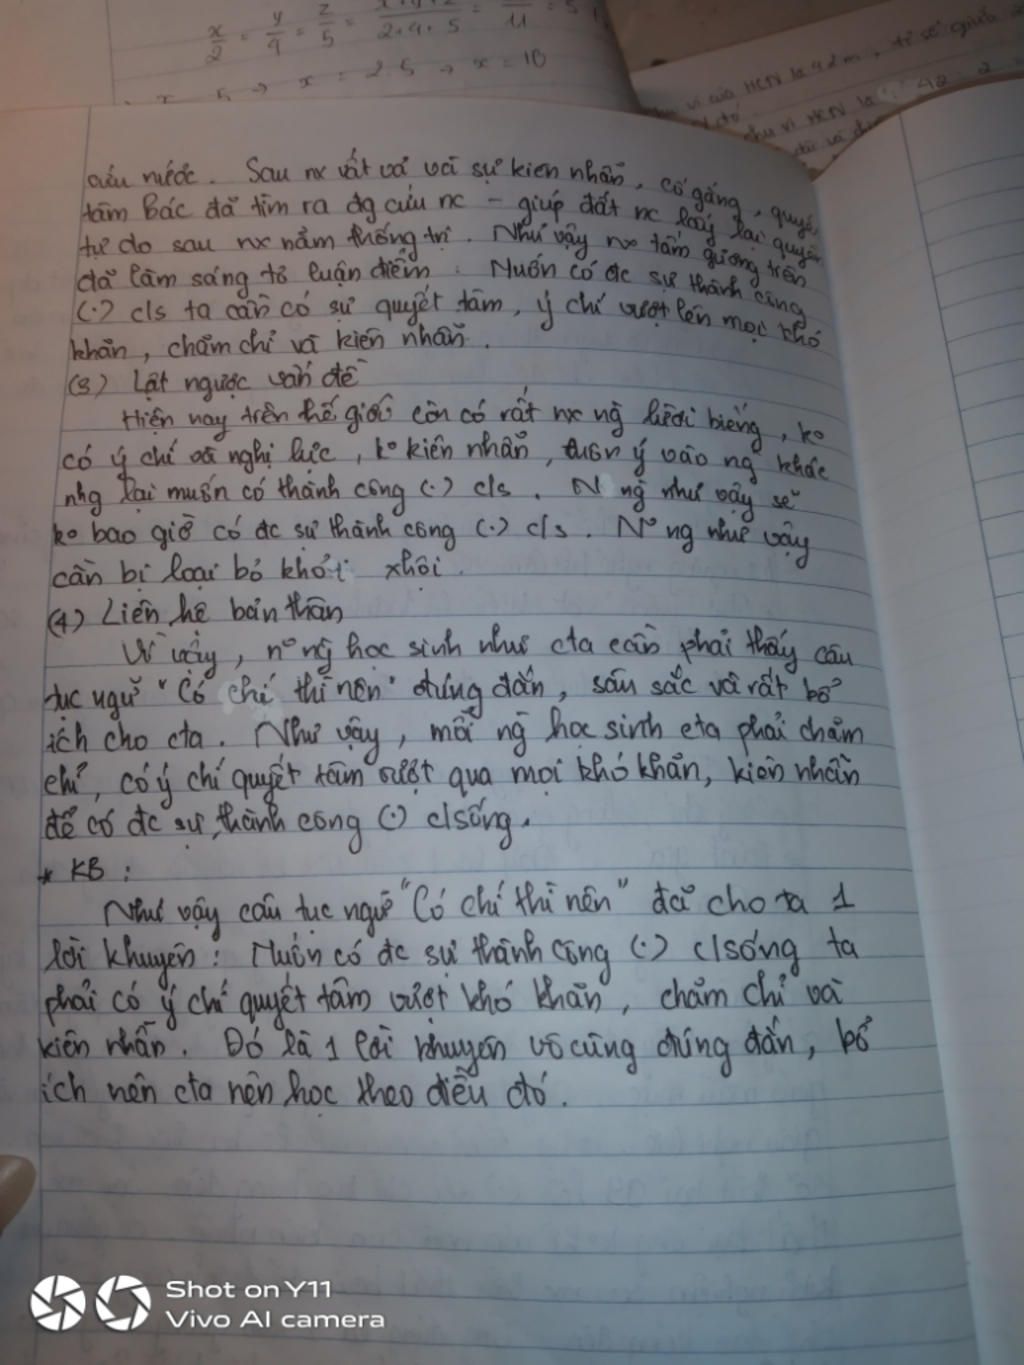 x/2 = y/4 = z/5 = = 5
x = 2.5 → x = 10
cứu nước. Sau nx vất vả và sự kiên nhẫn, cố gắng, quyết
tâm Bác đã tìm ra đg cứu nc - giúp đất nc lấy lại quyền
tự do sau nx năm thống trị. Như vậy nx tấm gương trên
đã làm sáng tỏ luận điểm: Muốn có đc sự thành công
(.) c/s ta cần có sự quyết tâm, ý chí vượt lên mọi khó
khăn, chăm chỉ và kiên nhẫn.
(3) Lật ngược vấn đề
Hiện nay trên thế giới còn có rất nx ng lười biếng, ko
có ý chí và nghị lực, ko kiên nhẫn, luôn ý vào ng khác
nhg lại muốn có thành công (.) c/s. N ng như vậy sẽ
ko bao giờ có đc sự thành công (.) c/s. N° ng như vậy
cần bị loại bỏ khỏi xhội.
(4) Liên hệ bản thân
Vì vậy, n° ng học sinh như cta cần phải thấy câu
tục ngữ "Có chí thì nên" đúng đắn, sâu sắc và rất bổ
ích cho cta. Như vậy, mỗi ng học sinh cta phải chăm
chỉ, có ý chí quyết tâm vượt qua mọi khó khăn, kiên nhẫn
để có đc sự thành công (.) c/sống.
* KB:
Như vậy câu tục ngữ "Có chí thì nên" đã cho ta 1
lời khuyên: Muốn có đc sự thành công (.) c/sống ta
phải có ý chí quyết tâm vượt khó khăn, chăm chỉ và
kiên nhẫn. Đó là 1 lời khuyên vô cùng đúng đắn, bổ
ích nên cta nên học theo điều đó.
Shot on Y11
Vivo AI camera